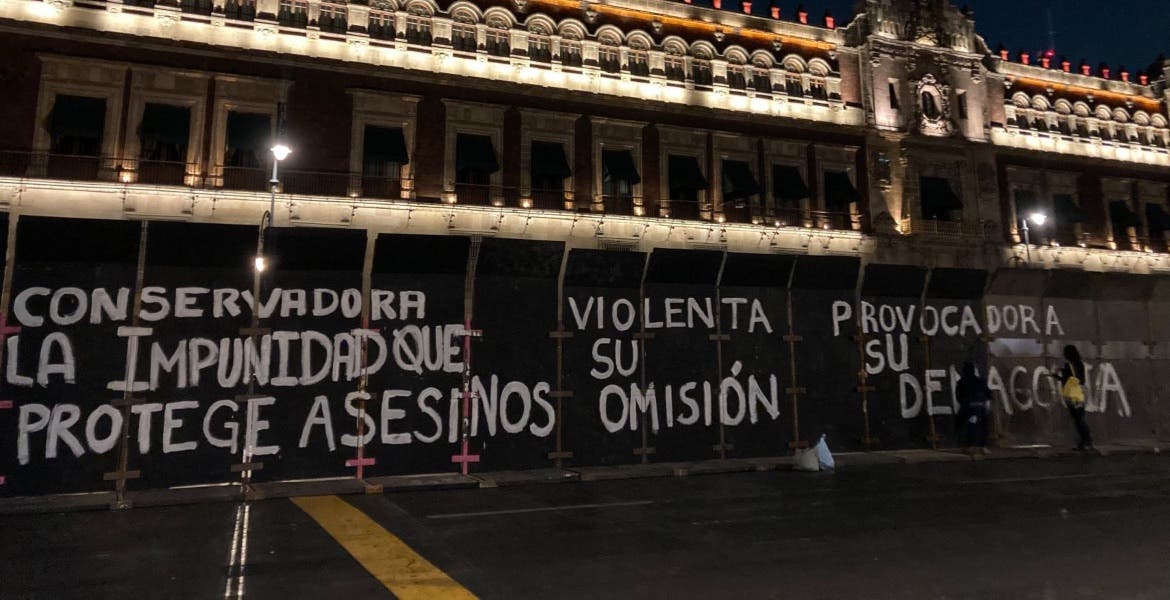 CONSERVADORA
LA IMPUNIDAD QUE
PROTEGE ASESINOS
VIOLENTA
SU
OMISIÓN
PROVOCADORA
SU
DEMAGOGIA